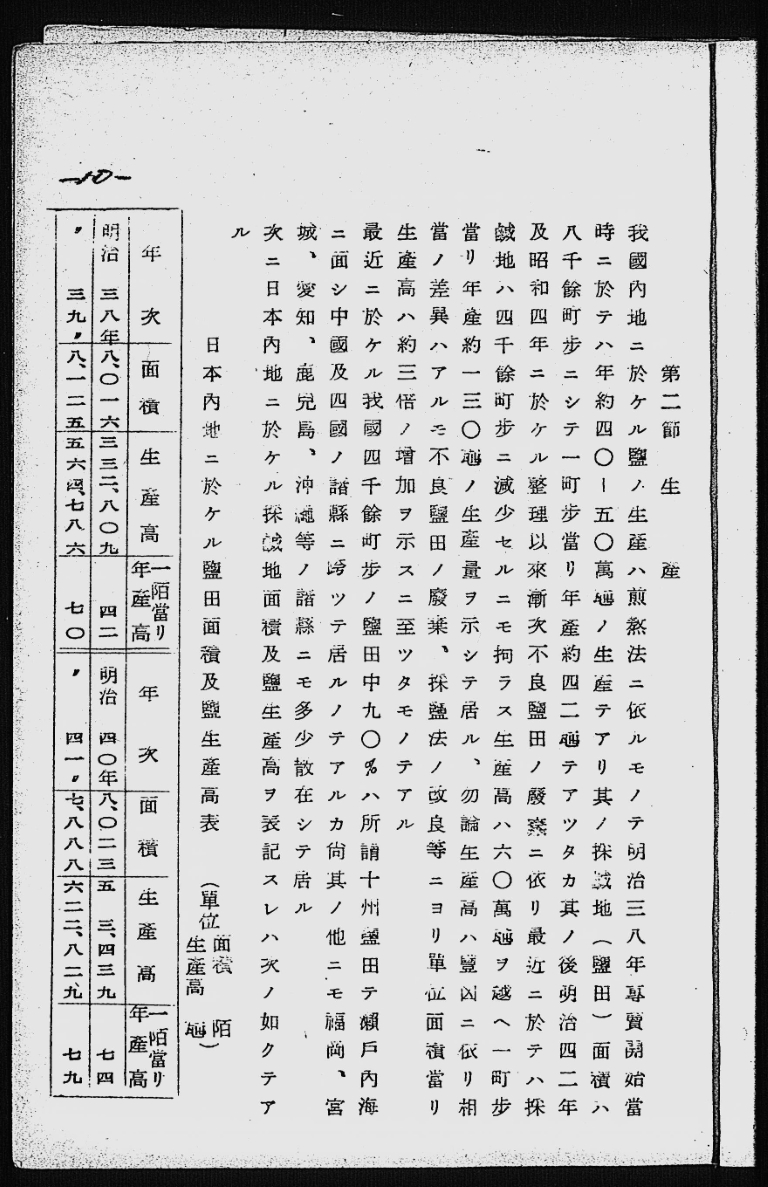 第二節 生産
我國內地ニ於ケル鹽ノ生產ハ煎熬法ニ依ルモノテ明治三八年專賣開始當
時ニ於テハ年約四〇—五〇萬瓲ノ生產テアリ其ノ採鹹地（鹽田）面積ハ
八千餘町步ニシテ一町步當リ年產約四二瓲テアツタカ其ノ後明治四二年
及昭和四年ニ於ケル整理以來漸次不良鹽田ノ廢棄ニ依リ最近ニ於テハ採
鹹地ハ四千餘町步ニ減少セルニモ拘ラス生產高ハ六〇萬瓲ヲ越ヘ一町步
當リ年產約一三〇瓲ノ生產量ヲ示シテ居ル、勿論生產高ハ豐凶ニ依リ相
當ノ差異ハアルモ不良鹽田ノ廢棄、採鹽法ノ改良等ニヨリ單位面積當リ
生產高ハ約三倍ノ增加ヲ示スニ至ツタモノテアル
最近ニ於ケル我國四千餘町步ノ鹽田中九〇％ハ所謂十州鹽田テ瀨戶內海
ニ面シ中國及四國ノ諸縣ニ跨ツテ居ルノテアルカ尙其ノ他ニモ福岡、宮
城、愛知、鹿兒島、沖繩等ノ諸縣ニモ多少散在シテ居ル
次ニ日本內地ニ於ケル採鹹地面積及鹽生產高ヲ表記スレハ次ノ如クテア
ル
日本內地ニ於ケル鹽田面積及鹽生產高表 （單位 面積 陌
生產高 瓲）
年次 面積 生產高 一陌當リ年產高 年次 面積 生產高 一陌當リ年產高
明治 三八年 八、〇一六 三三二、八〇九 四二 明治 四〇年 八、〇二三 五 三、四三九 七四
〃 三九〃 八、一二五 五六四、七八六 七〇 〃 四一〃 七、八八八 六二二、八二九 七九
—10—